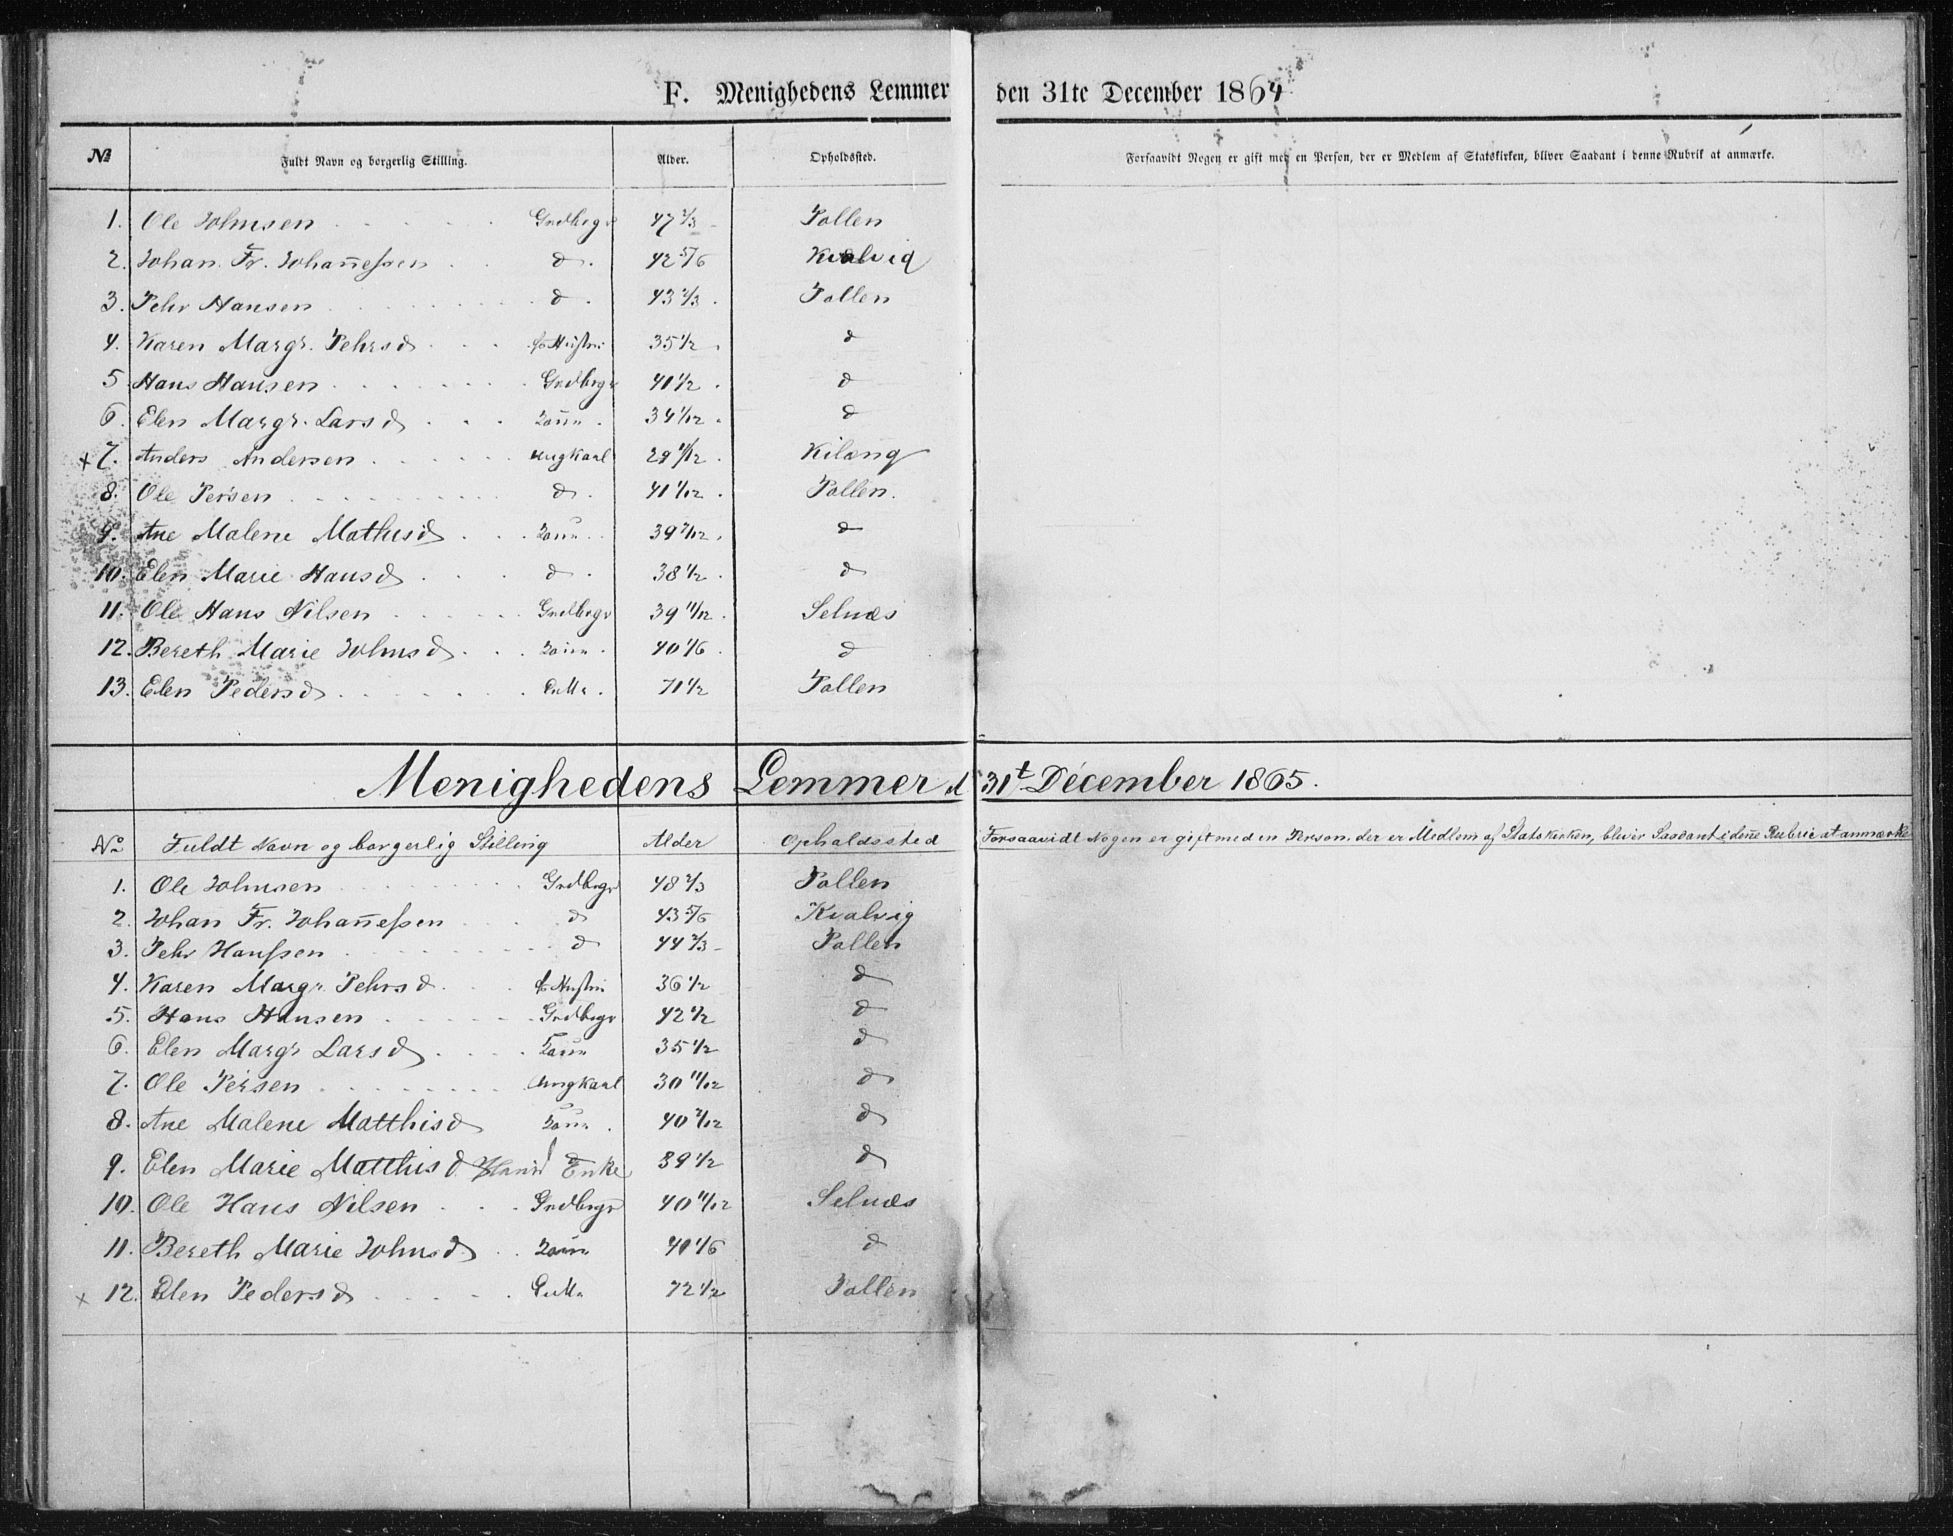 F. Menighedens Lemmer den 31te December 1864
№ Fuldt Navn og borgerlig Stilling. Alder. Opholdssted. Forsaavidt Nogen er gift med en Person, der er Medlem af Statskirken, bliver Saadant i denne Rubrik at anmærke.
1. Ole Johnsen Grdbrgr 47 2/3 Pollen
2. Johan Fr. Johanneſsen d 42 5/6 Kvalvig
3. Pehr Hansen d 43 2/3 Pollen
4. Karen Margr. Pehrsd Hustru 35 1/2 d
5 Hans Hansen Grdbrgr 41 1/2 d
6. Elen Margr. Larsd 34 1/12 d
+ 7. Anders Andersen Ungkarl 29 11/12 Kilang
8. Ole Persen d 41 1/12 Pollen.
9. Ane Malene Mathisd 39 2/12 d
10. Elen Marie Hansd d 38 1/2 d
11. Ole Hans Nilsen Grdbrgr 39 11/12 Selnæs
12. Bereth Marie Johnsd 40 1/6 d
13. Elen Pedersd 71 1/2 Pollen
Menighedens Lemmer d 31t December 1865.
No Fuldt Navn og borgerlig Stilling Alder Opholdssted Forsaavidt Nogen er gift med en Person, der er Medlem af Statskirken, bliver Saadant i denne Rubrik at anmærke
1. Ole Johnsen Grdbrgr 48 2/3 Pollen
2. Johan Fr. Johanneſsen d 43 5/6 Kvalvig
3. Pehr Hanſsen d 44 2/3 Pollen
4. Karen Margr. Pehrsd Hustru 36 1/2 d
5. Hans Hansen Grdbrgr 42 1/2 d
6. Elen Margr Larsd 35 1/2 d
7. Ole Persen Ungkarl 30 11/12 d
8. Ane Malene Matthisd 40 2/12 d
9. Elen Marie Matthisd Hansd Enke 39 1/2 d
10. Ole Hans Nilsen Grdbrgr 40 11/12 Selnæs
11. Bereth Marie Johnsd 41 1/6 d
+ 12. Elen Pedersd 72 1/2 Pollen